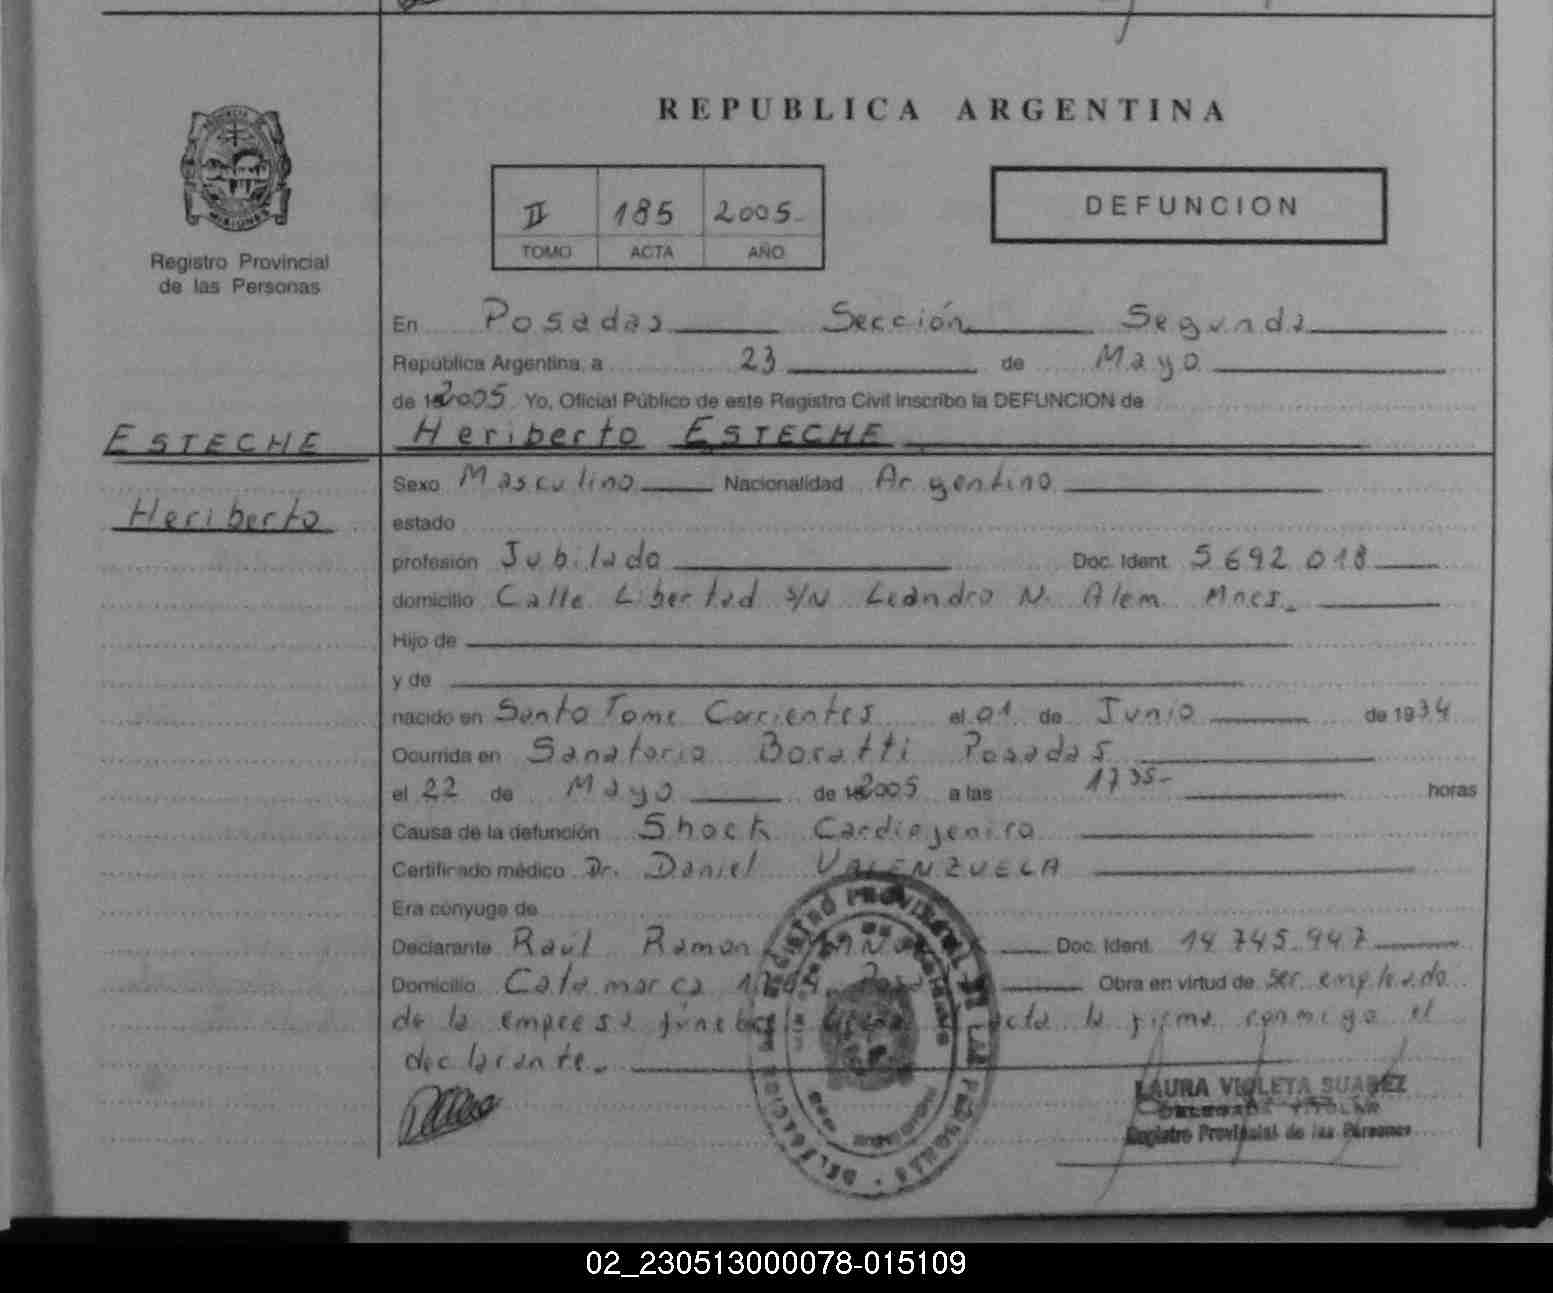 REPUBLICA ARGENTINA
MISIONES
Registro Provincial
de las Personas
II 185 2005-
TOMO ACTA AÑO
DEFUNCION
En Posadas Sección Segunda
República Argentina, a 23 de Mayo
de 2005 Yo, Oficial Público de este Registro Civil inscribo la DEFUNCION de
ESTECHE
Heriberto
Heriberto ESTECHE
Sexo Masculino Nacionalidad Argentino
estado
profesión Jubilado Doc. Ident. 5692018
domicilio Calle Libertad S/N Leandro N. Alem Mnes.
Hijo de
y de
nacido en Santo Tome Corrientes el 01 de Junio de 1934
Ocurrida en Sanatorio Boratti Posadas
el 22 de Mayo de 2005 a las 1735- horas
Causa de la defunción Shock Cardiogenico
Certificado médico Dr. Daniel VALENZUELA
Era cónyuge de
Declarante Raúl Ramon Doc. Ident. 14.745.947
Domicilio Catamarca Obra en virtud de ser empleado
de la empresa la firma conmigo el
declarante.
REGISTRO PROVINCIAL DE LAS PERSONAS
LAURA VIOLETA SUAREZ
DELEGADA TITULAR
Registro Provincial de las Personas
02_230513000078-015109